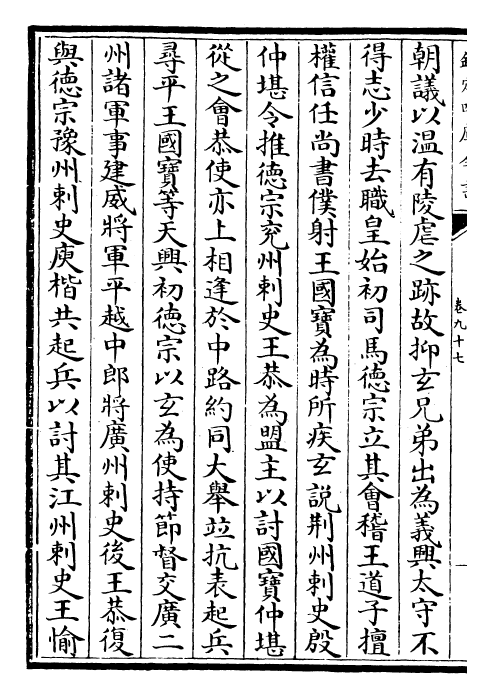 欽定四庫全書
卷九十七
一
朝議以温有陵虐之跡故抑玄兄弟出為義興太守不
得志少時去職皇始初司馬德宗立其會稽王道子擅
權信任尚書僕射王國寶為時所疾玄說荆州刺史殷
仲堪令推德宗兖州刺史王恭為盟主以討國寶仲堪
從之會恭使亦上相逢於中路約同大舉並抗表起兵
尋平王國寶等天興初德宗以玄為使持節督交廣二
州諸軍事建威將軍平越中郎將廣州刺史後王恭復
與德宗豫州刺史庾楷共起兵以討其江州刺史王愉